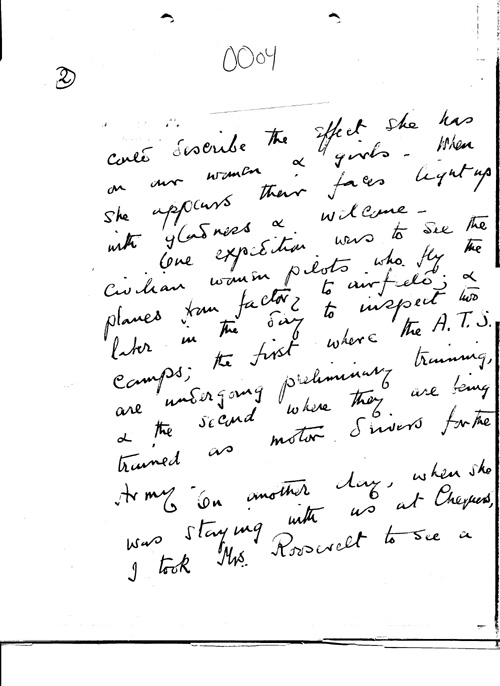 0004
2
could describe the effect she has
on our women & girls - When
she appears their faces light up
with gladness & welcome -
One expedition was to see the
civilian women pilots who fly the
planes from factory to airfield; &
later in the day to inspect two
camps; the first where the A.T.S.
are undergoing preliminary training,
& the second where they are being
trained as motor drivers for the
Army. On another day, when she
was staying with us at Chequers,
I took Mrs. Roosevelt to see a